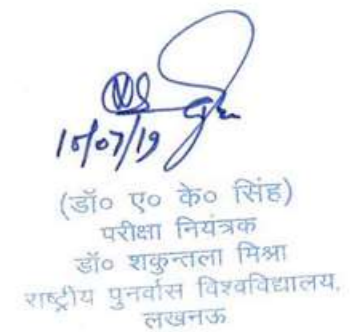 15/07/19
(डॉ० ए० के० सिंह)
परीक्षा नियंत्रक
डॉ० शकुन्तला मिश्रा
राष्ट्रीय पुनर्वास विश्वविद्यालय,
लखनऊ